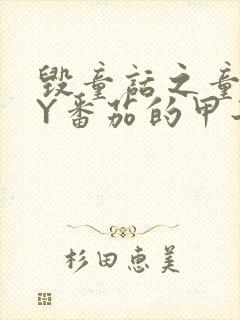 毁童话之童
Y番茄的甲
杉田惠美